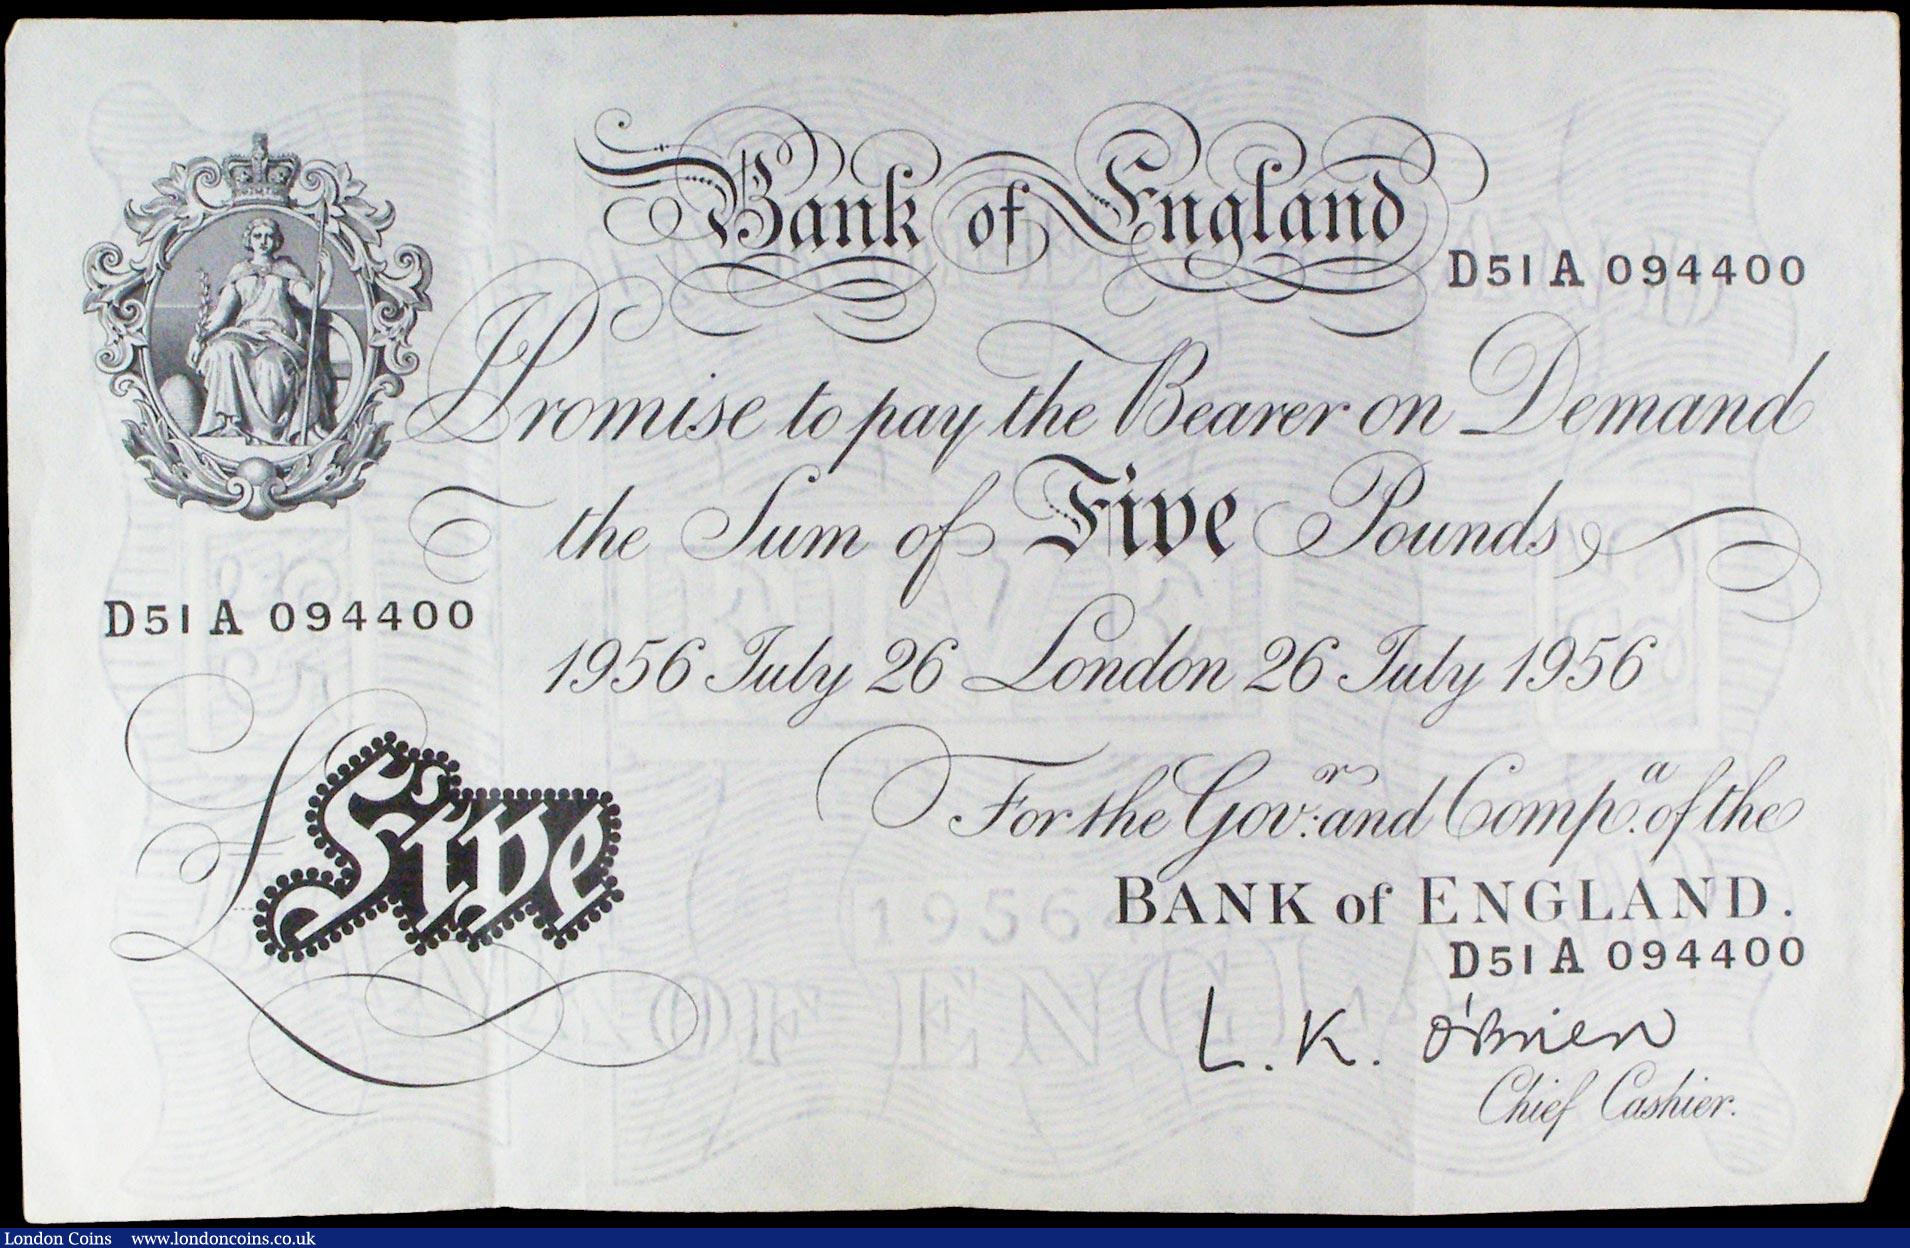 Bank of England
D51A 094400
I Promise to pay the Bearer on Demand
the Sum of Five Pounds
D51A 094400
1956 July 26 London 26 July 1956
£Five
For the Govr: and Compa. of the
BANK of ENGLAND.
1956
D51A 094400
OF ENGLAND
L. K. O'Brien
Chief Cashier.
London Coins www.londoncoins.co.uk